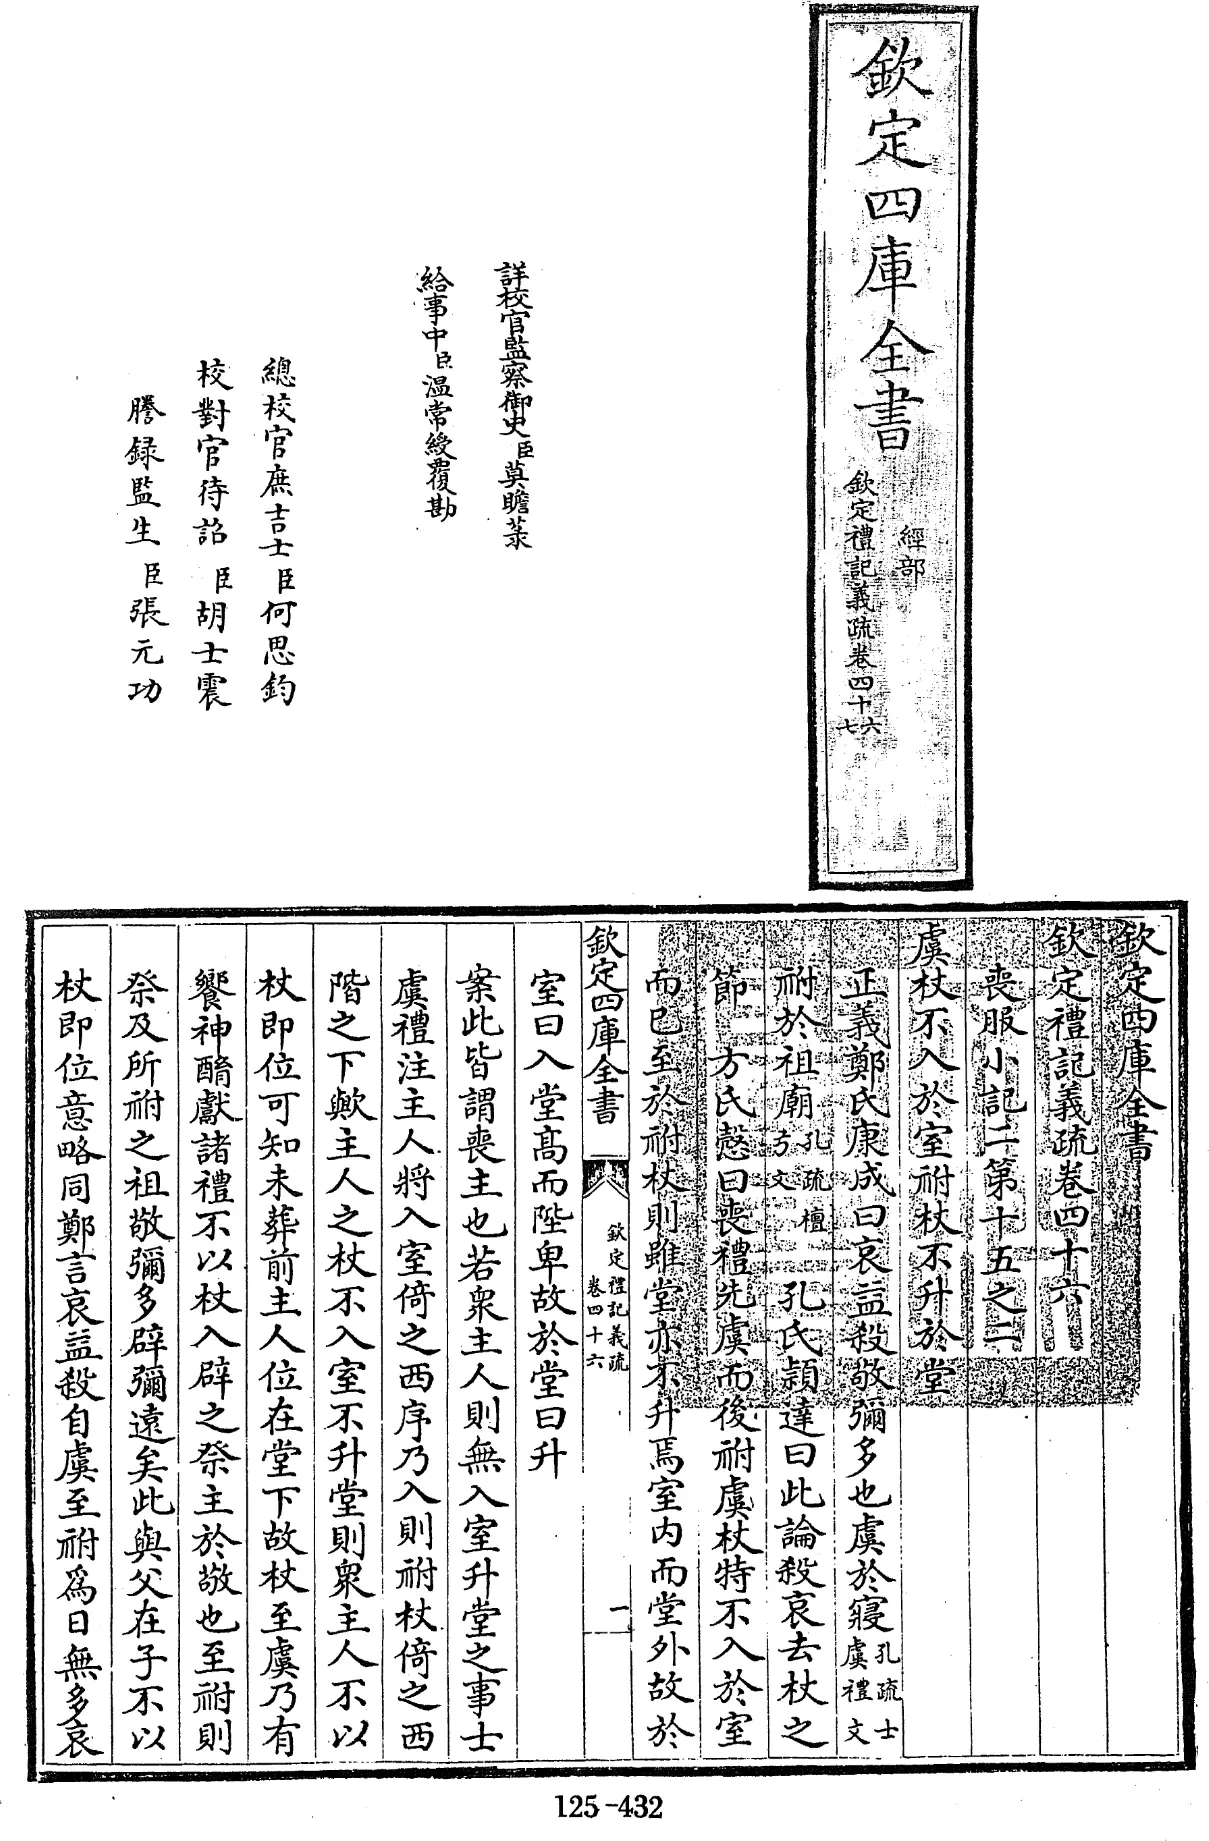 欽定四庫全書
經部
欽定禮記義疏卷四十六
七
詳校官監察御史臣莫瞻菉
給事中臣溫常綬覆勘
總校官庶吉士臣何思鈞
校對官待詔臣胡士震
謄録監生臣張元功
欽定四庫全書
欽定禮記義疏卷四十六
喪服小記二第十五之二
虞杖不入於室祔杖不升於堂
正義鄭氏康成曰哀益殺敬彌多也虞於寢孔疏士虞禮文
祔於祖廟孔疏檀弓文孔氏穎達曰此論殺哀去杖之
節方氏慤曰喪禮先虞而後祔虞杖特不入於室
而已至於祔杖則雖堂亦不升焉室内而堂外故於
欽定四庫全書
欽定禮記義疏
卷四十六
一
室曰入堂高而陛卑故於堂曰升
案此皆謂喪主也若衆主人則無入室升堂之事士
虞禮注主人將入室倚之西序乃入則祔杖倚之西
階之下歟主人之杖不入室不升堂則衆主人不以
杖即位可知未葬前主人位在堂下故杖至虞乃有
饗神酳獻諸禮不以杖入辟之祭主於敬也至祔則
祭及所祔之祖敬彌多辟彌遠矣此與父在子不以
杖即位意略同鄭言哀益殺自虞至祔爲日無多哀
125-432